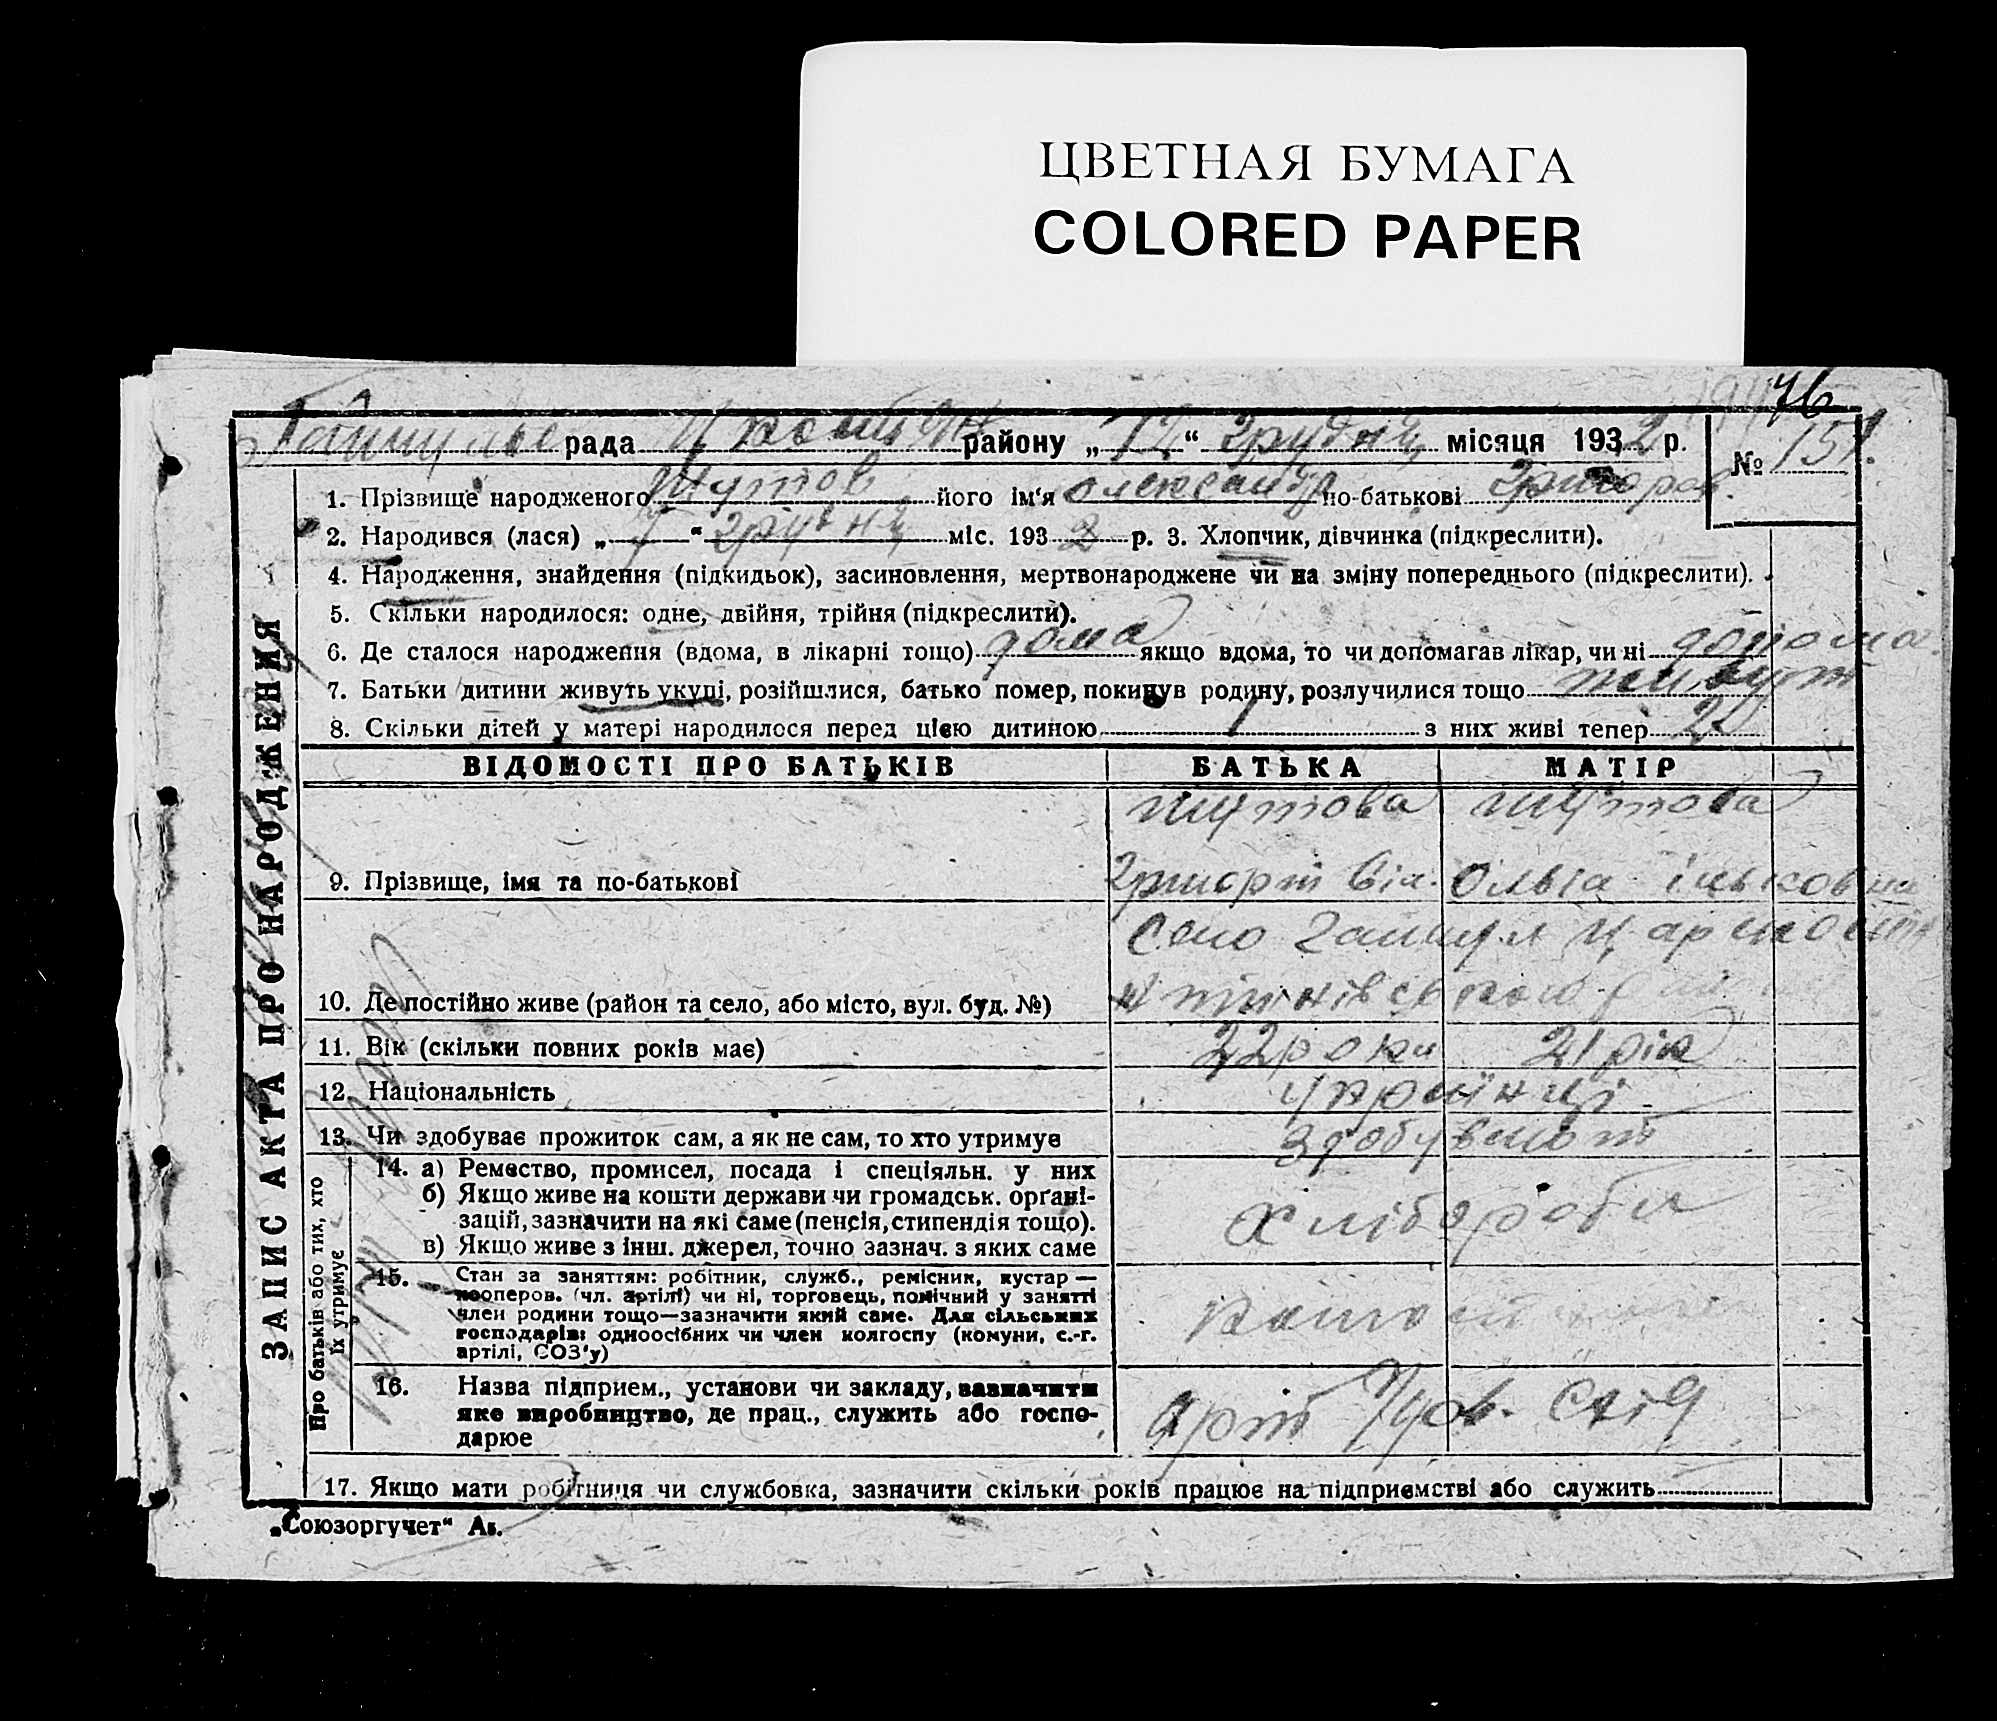 ЦВЕТНАЯ БУМАГА
COLORED PAPER
76
рада району „12“ грудня місяця 1932 р.
№ 151.
1. Прізвище народженого Шутов його ім'я Олександр по-батькові Григоров.
2. Народився (лася) „7“ грудня міс. 1932 р. 3. Хлопчик, дівчинка (підкреслити).
4. Народження, знайдення (підкидьок), засиновлення, мертвонароджене чи на зміну попереднього (підкреслити).
5. Скільки народилося: одне, двійня, трійня (підкреслити).
6. Де сталося народження (вдома, в лікарні тощо) дома якщо вдома, то чи допомагав лікар, чи ні
7. Батьки дитини живуть укупі, розійшлися, батько помер, покинув родину, розлучилися тощо живут
8. Скільки дітей у матері народилося перед цією дитиною 1 з них живі тепер 2
ЗАПИС АКТА ПРО НАРОДЖЕННЯ
ВІДОМОСТІ ПРО БАТЬКІВ БАТЬКА МАТІР
Шутова Шутова
9. Прізвище, імя та по-батькові Ольга
село
10. Де постійно живе (район та село, або місто, вул. буд. №)
11. Вік (скільки повних років має) 22 роки 21 рік
12. Національність українці
13. Чи здобуває прожиток сам, а як не сам, то хто утримує здобувают
Про батьків або тих, хто їх утримує
14. а) Ремество, промисел, посада і спеціяльн. у них
б) Якщо живе на кошти держави чи громадськ. орґані-
зацій, зазначити на які саме (пенсія, стипендія тощо).
в) Якщо живе з інш. джерел, точно зазнач. з яких саме
хлібороби
15. Стан за заняттям: робітник, служб., ремісник, кустар —
кооперов. (чл. артілі) чи ні, торговець, помічний у занятті
член родини тощо—зазначити який саме. Для сільських
господарів: одноосібних чи член колгоспу (комуни, с.-г.
артілі, СОЗ'у)
16. Назва підприєм., установи чи закладу, зазначити
яке виробництво, де прац., служить або госпо-
дарює
арт
17. Якщо мати робітниця чи службовка, зазначити скільки років працює на підприємстві або служить
„Союзоргучет“